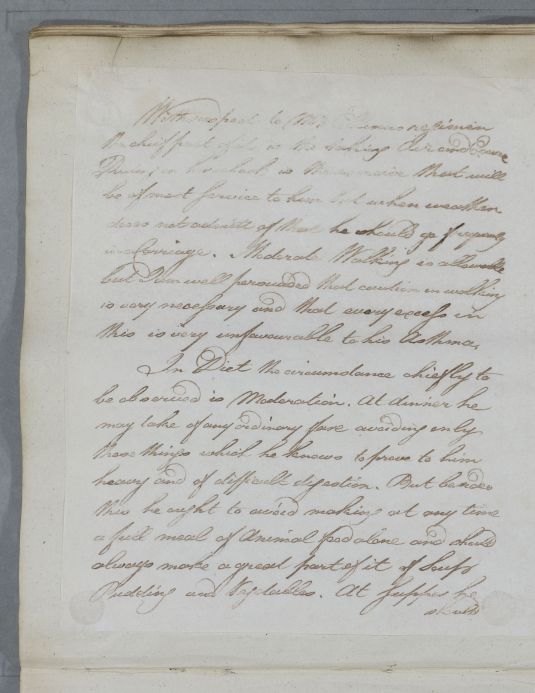 With respect to Mr regimen
the chief part of it is the taking Air and Exercise
horseback is the exercise that will
be of most service to him but when weather
does not admitt of that he should go frequently
in a Carriage. Moderate Walking is allowable
but I am well perswaded that caution in walking
is very necessary and that every excess in
this is very unfavourable to his Asthma.
In Diet the circumstance chiefly to
be observed is Moderation. At dinner he
may take of any ordinary fare avoiding only
those things which he knows to prove to him
heavy and of difficult digestion. But besides
this he ought to avoid making at any time
a full meal of Animal food alone and should
always make a great part of it of Soup
Pudding and Vegetables. At Supper he
should